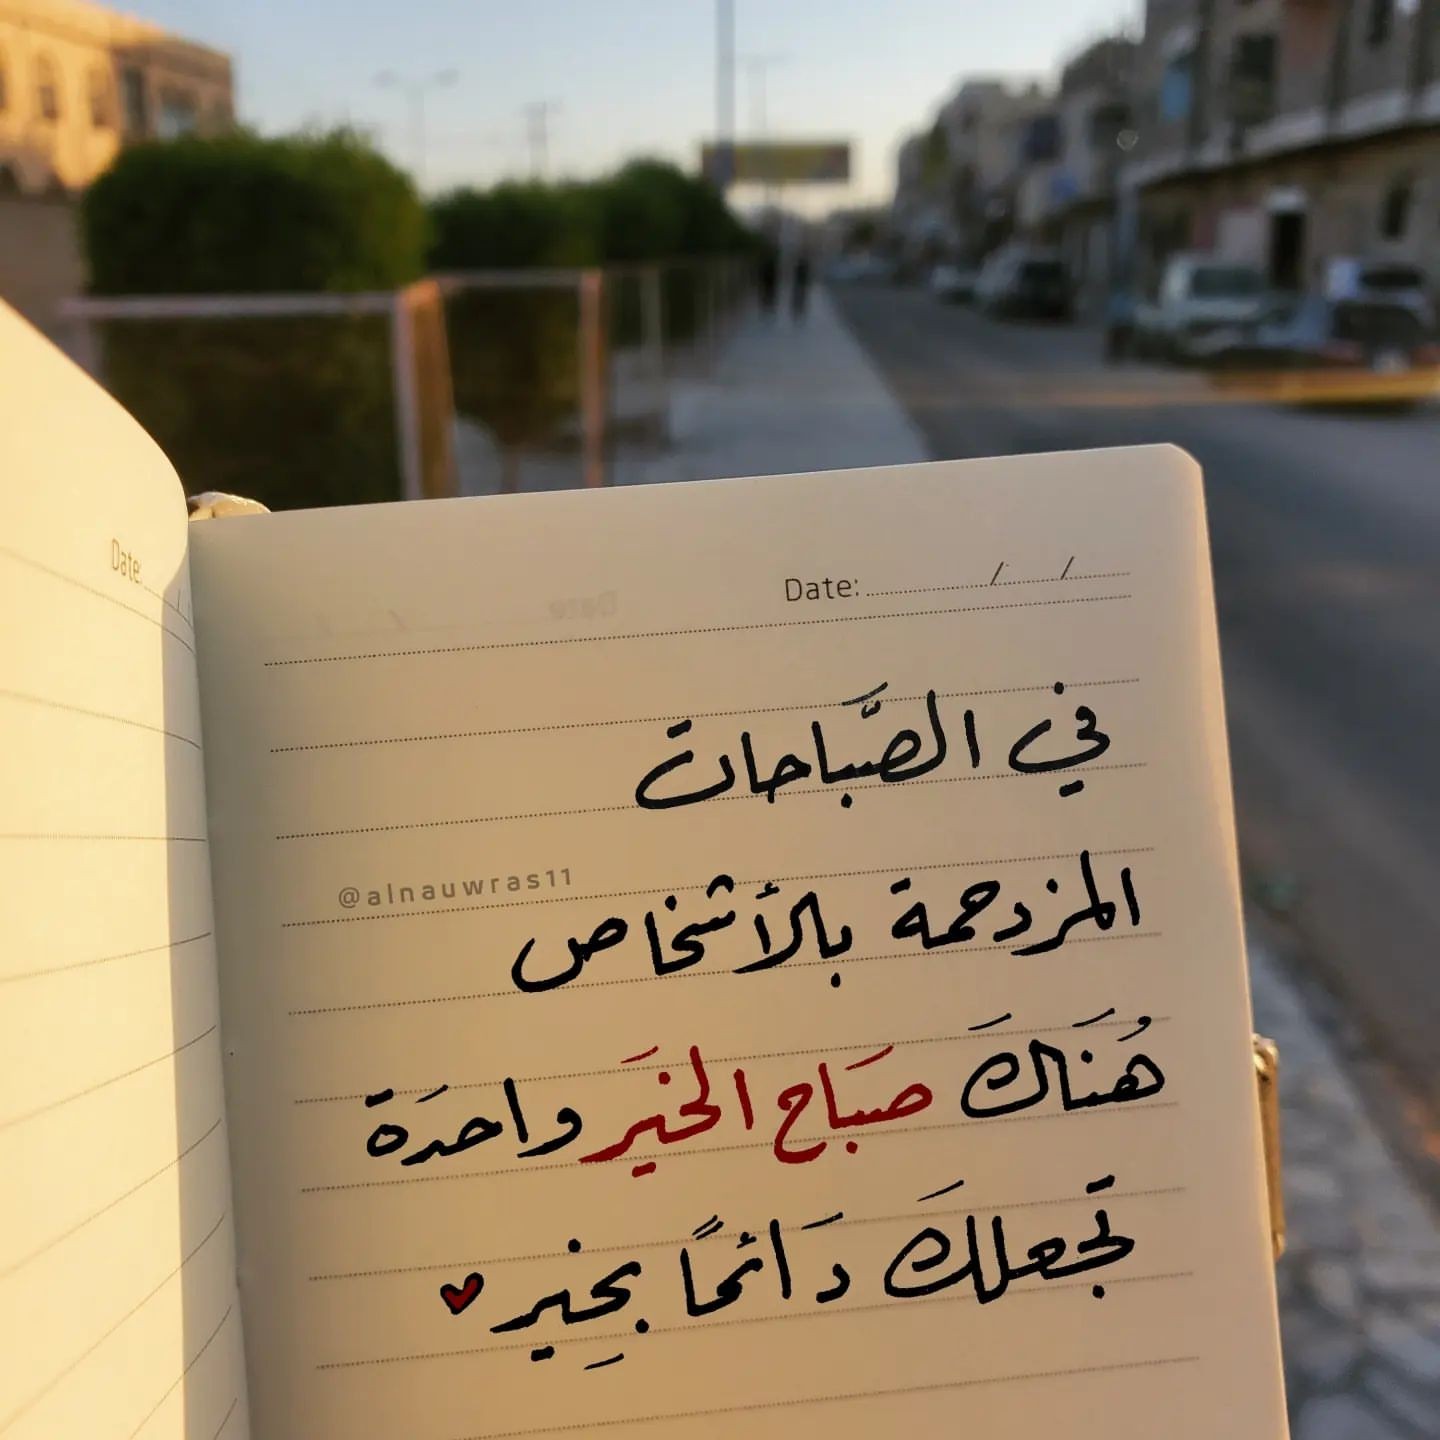 Date:
Date: / /
في الصَّباحات
@alnauwras11
المزدحمة بالأشخاص
هُنَاكَ صبَاح الخيَر واحدَة
تجعلكَ دَائماً بخِير